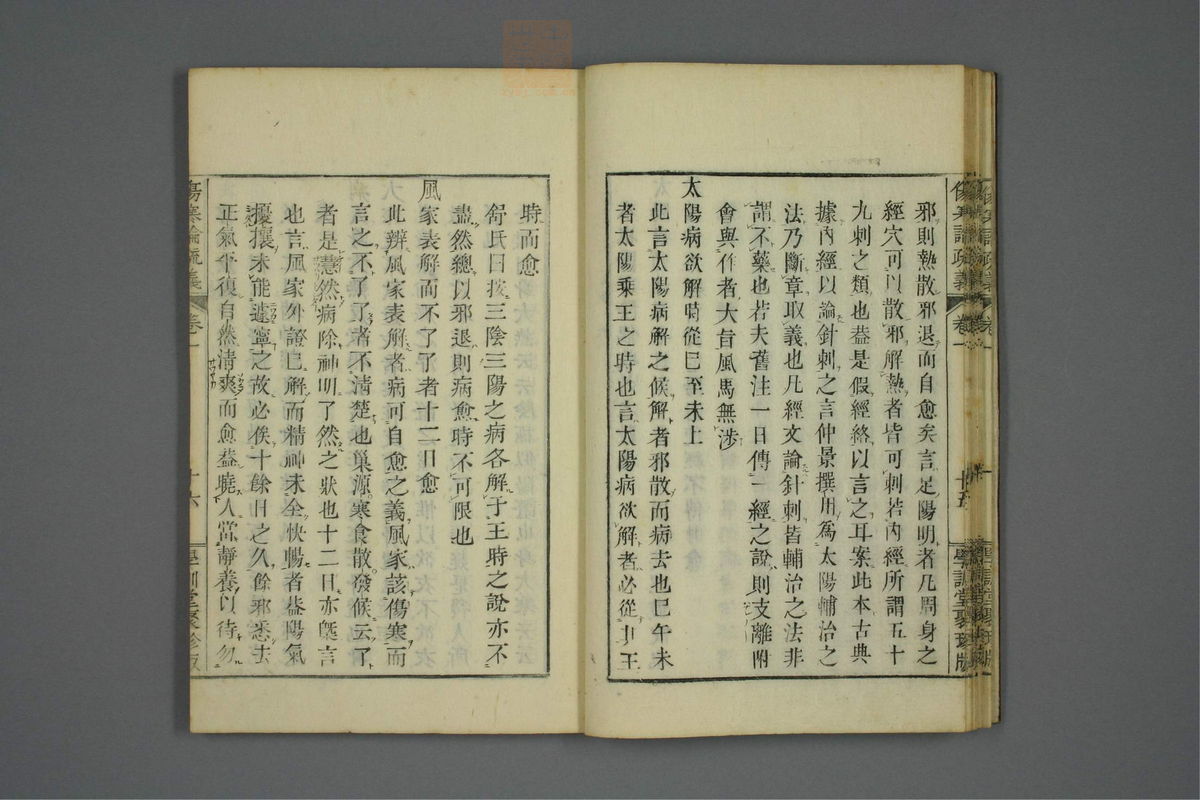 邪則熱散邪退而自愈矣言足陽明者凡周身之
經穴可以散邪解熱者皆可刺若內經所謂五十
九刺之類也蓋是假經絡以言之耳案此本古典
據內經以論針刺之言仲景撰用爲太陽輔治之
法乃斷章取義也凡經文論針刺皆輔治之法非
謂不藥也若夫舊注一日傳一經之說則支離附
會與作者大旨風馬無涉
太陽病欲解時從巳至未上
此言太陽病解之候解者邪散而病去也巳午未
者太陽乘王之時也言太陽病欲解者必從其王
時而愈
舒氏曰按三陰三陽之病各解于王時之說亦不
盡然總以邪退則病愈時不可限也
風家表解而不了了者十二日愈
此辨風家表解者病可自愈之義風家該傷寒而
言之不了了者不清楚也巢源寒食散發候云了
者是慧然病除神明了然之狀也十二日亦槩言
也言風家外證已解而精神未全快暢者蓋陽氣
擾攘未能遽寧之故必俟十餘日之久餘邪悉去
正氣平復自然清爽而愈蓋曉人當靜養以待勿
傷寒論疏義 卷一 十六 學訓堂聚珍版